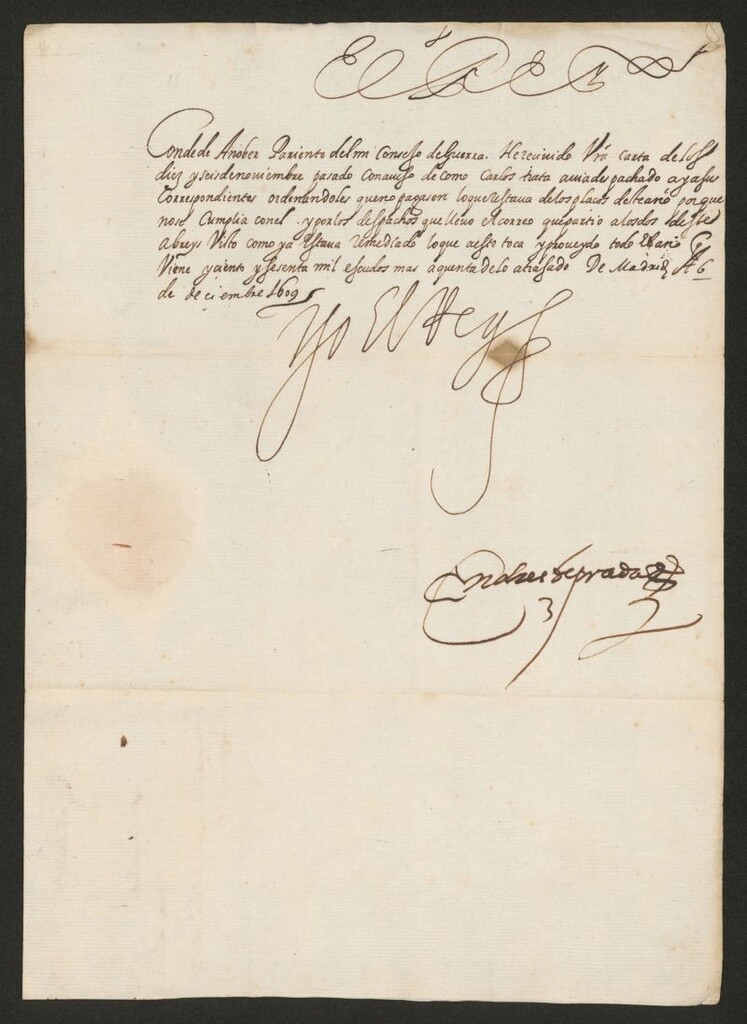 El Rey
Conde de Añober Pariente del mi Consejo de Guerra. He recivido Vrã carta de los
diez y seis de noviembre pasado con aviso de como Carlos trata avia despachado a sus
Correspondientes ordenandoles que no pagasen lo que restava de los plaços deste año porque
no se Cumplia con el. y por los despachos que llevo el correo que partio a los dos deste
abreys Visto como ya estava remediado lo que a esto toca y proveydo todo el año q̃
Viene y ciento y sesenta mil escudos mas a quenta de lo atrasado De Madrid A 6
de deciembre 1609
Yo El Rey
Andres de prada